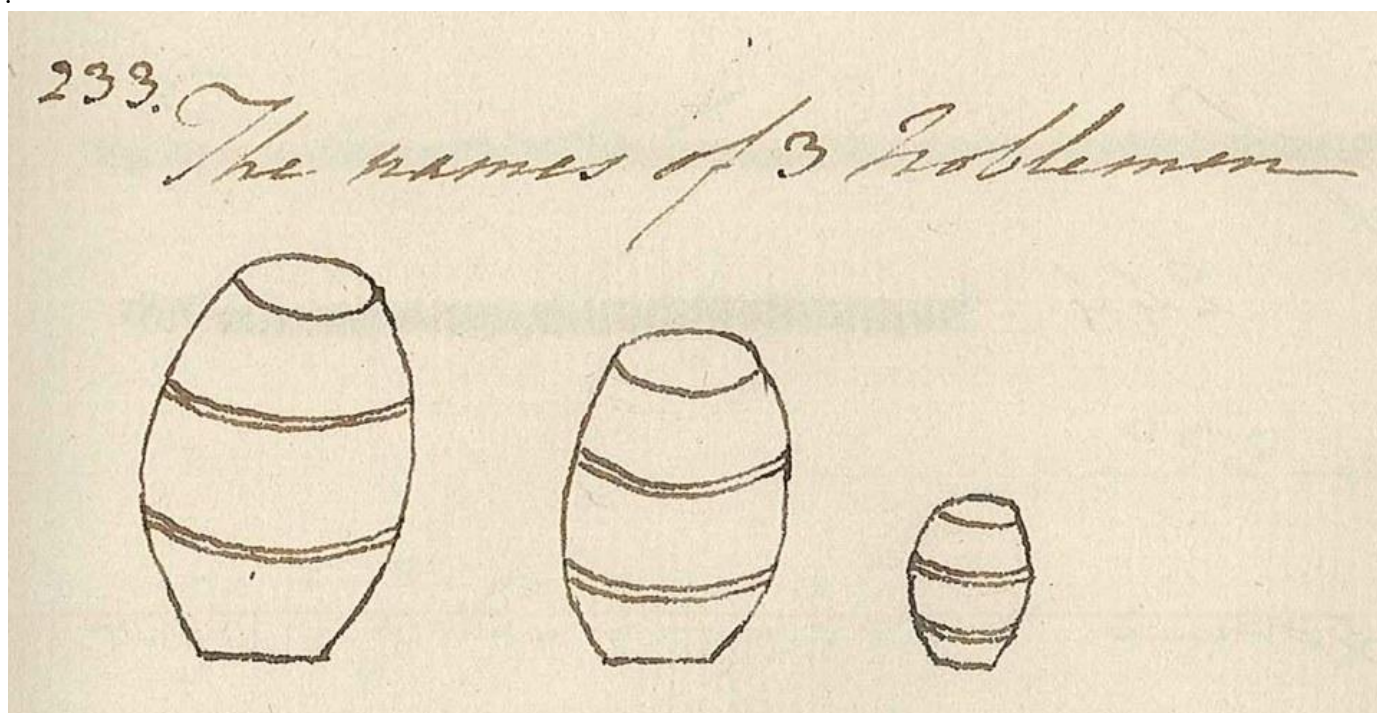 233. The names of 3 Noblemen